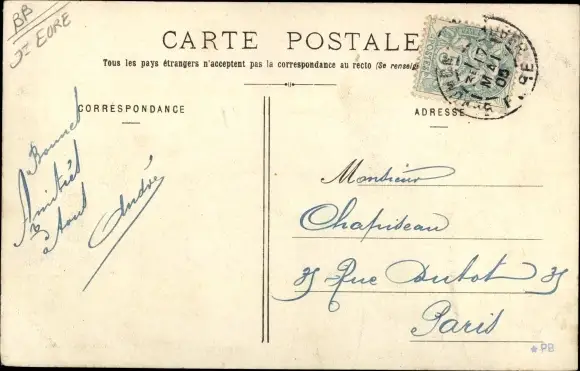 BB
J= EORE
CARTE POSTALE
Tous les pays étrangers n'acceptent pas la correspondance au recto (Se renseig
CORRESPONDANCE
ADRESSE
Bonnes
Amitiés
à tous
André
Monsieur
Chapiseau
35 Rue Dutot 35
Paris
*PB